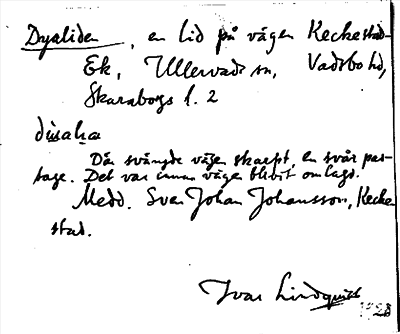 Dyaliden, en lid på vägen Keckestad-
Ek, Ullervads sn, Vadsbo hd,
Skaraborgs l. 2
Där svängde vägen skarpt, en svår pas-
sage. Det var innan vägen blivit omlagd.
Medd. Sven Johan Johansson, Kecke
stad.
Ivar Lindquist
1923